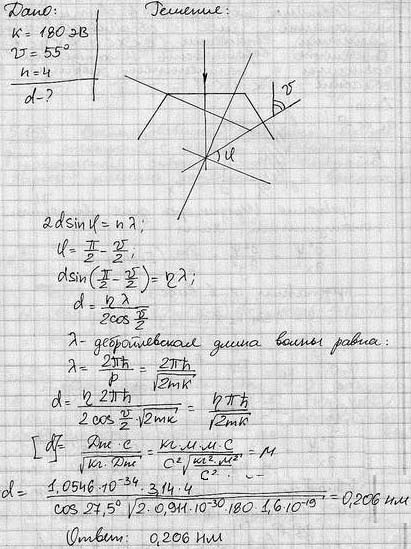 Дано:
Решение:
K = 180 эВ
υ = 55°
n = 4
d-?
υ
φ
2dsinφ = nλ;
φ = π/2 - υ/2;
dsin(π/2 - υ/2) = nλ;
d = nλ / 2cos υ/2
λ - дебройлевская длина волны равна:
λ = 2πħ / p = 2πħ / √2mK
d = n 2πħ / 2 cos υ/2 · √2mK = nπħ / √2mK
[d] = Дж · с / √кг · Дж = кг · м · м · с / с² √кг² · м² / с² = м
d = 1,0546 · 10⁻³⁴ · 3,14 · 4 / cos 27,5° √2 · 0,911 · 10⁻³⁰ · 180 · 1,6 · 10⁻¹⁹ = 0,206 нм
Ответ: 0,206 нм